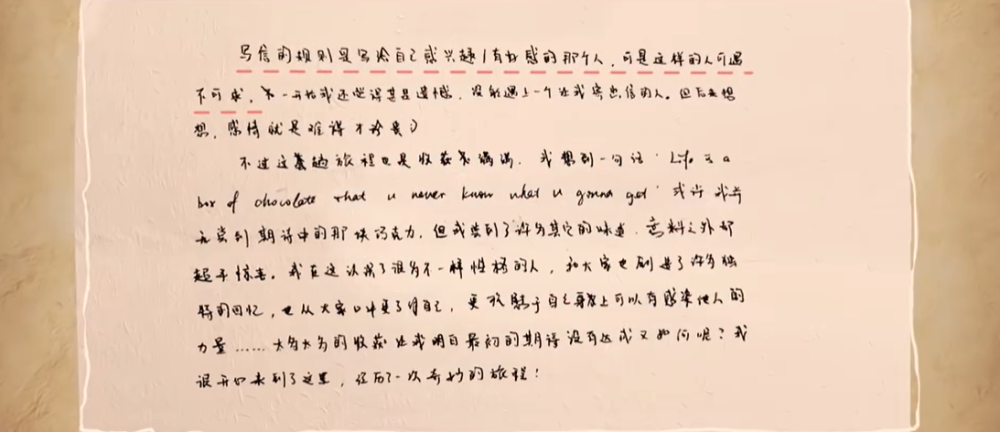 写信的规则是写给自己感兴趣/有好感的那个人，可是这样的人可遇
不可求，一开始我还觉得甚是遗憾，没能遇上一个让我寄出信的人。但后来想
想，感情就是难得才珍贵）
不过这趟旅程也是收获满满，我想到一句话‘Life is a
box of chocolate that u never know what u gonna get’或许我并
无尝到期待中的那块巧克力，但我尝到了许多其它的味道，意料之外却
超乎惊喜。我在这认识了许多不一样性格的人，和大家也创造了许多独
特的回忆，也从大家口中更了解自己，更于自己身上可以有感染他人的
力量……太多太多的收获让我明白最初的期待没有达成又如何呢？我
很开心来到了这里，经历了一次奇妙的旅程！